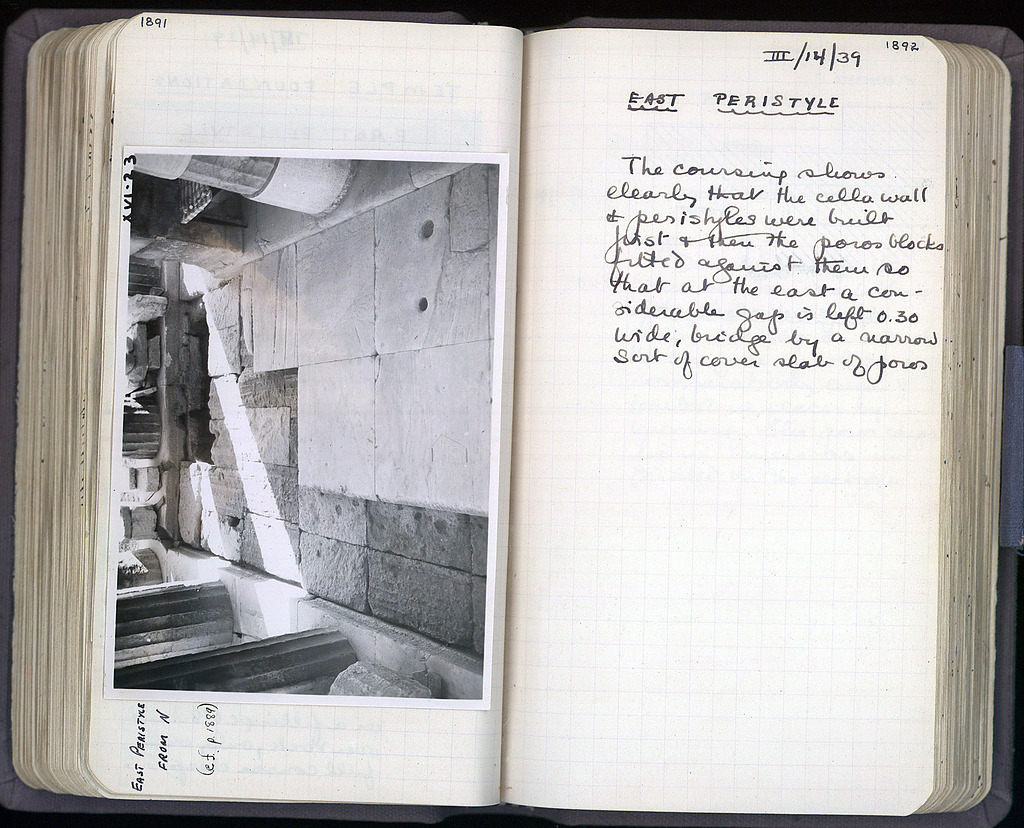 1891
XVI·23
EAST PERISTYLE
FROM N
(cf. p. 1889)
1892
III/14/39
EAST PERISTYLE
The coursing shows
clearly that the cella wall
& peristyles were built
first & then the poros blocks
fitted against them so
that at the east a con-
siderable gap is left 0.30
wide, bridge by a narrow
sort of cover slab of poros